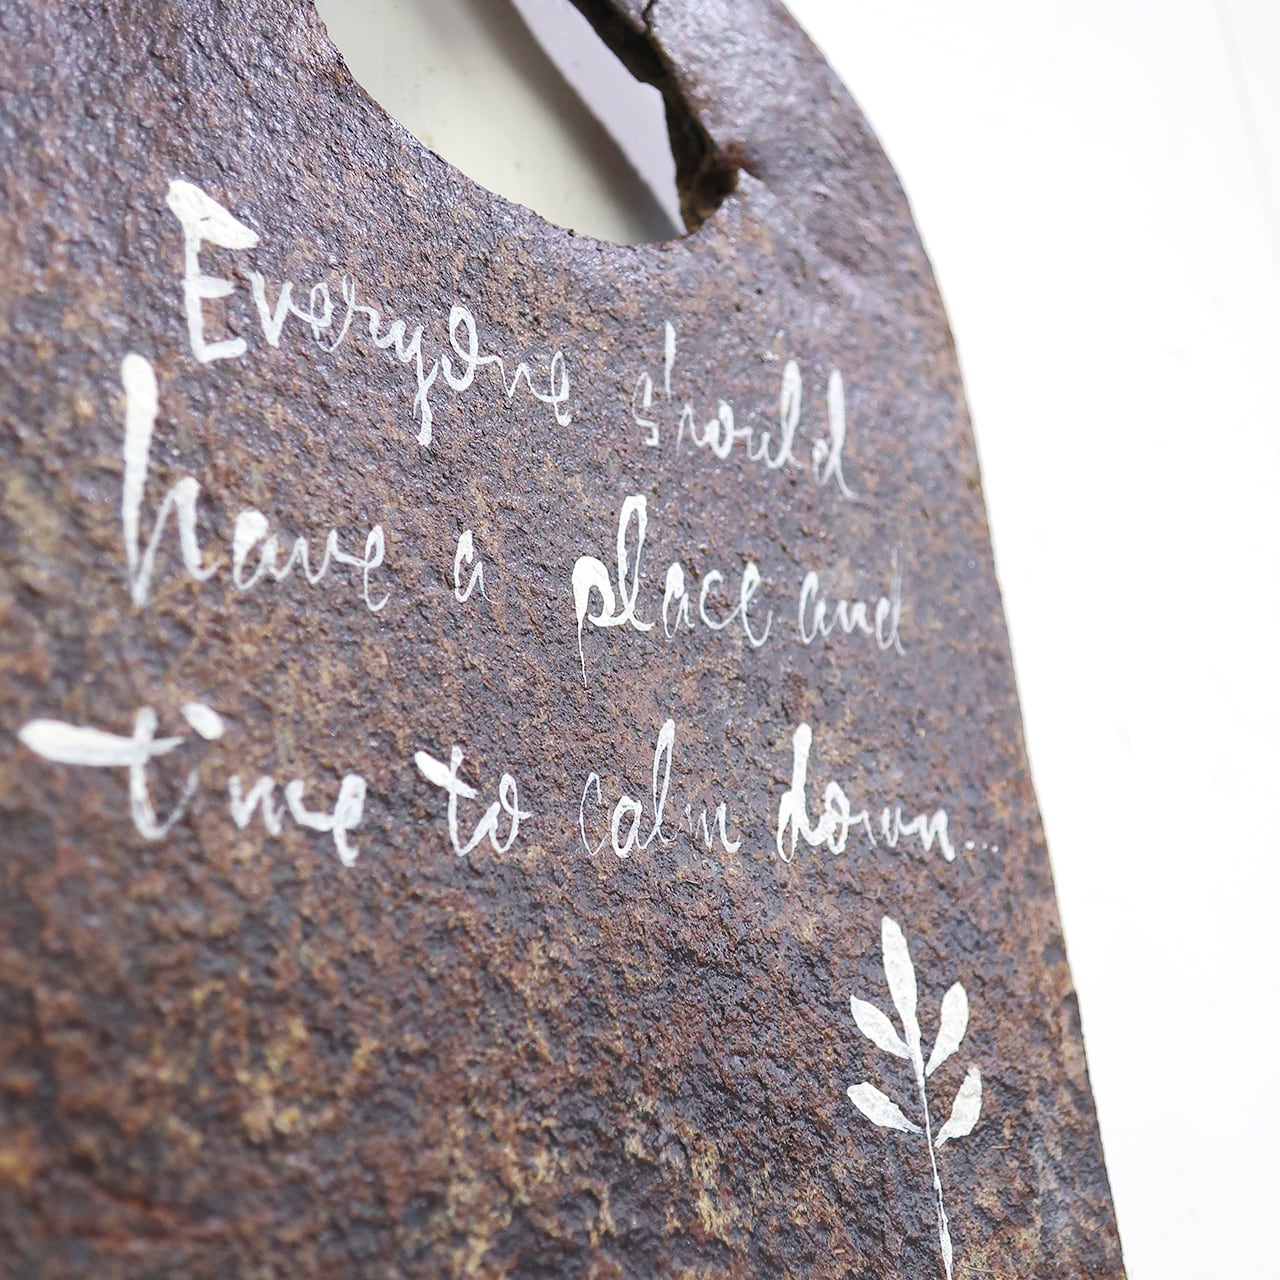 Everyone should
have a place and
time to calm down...